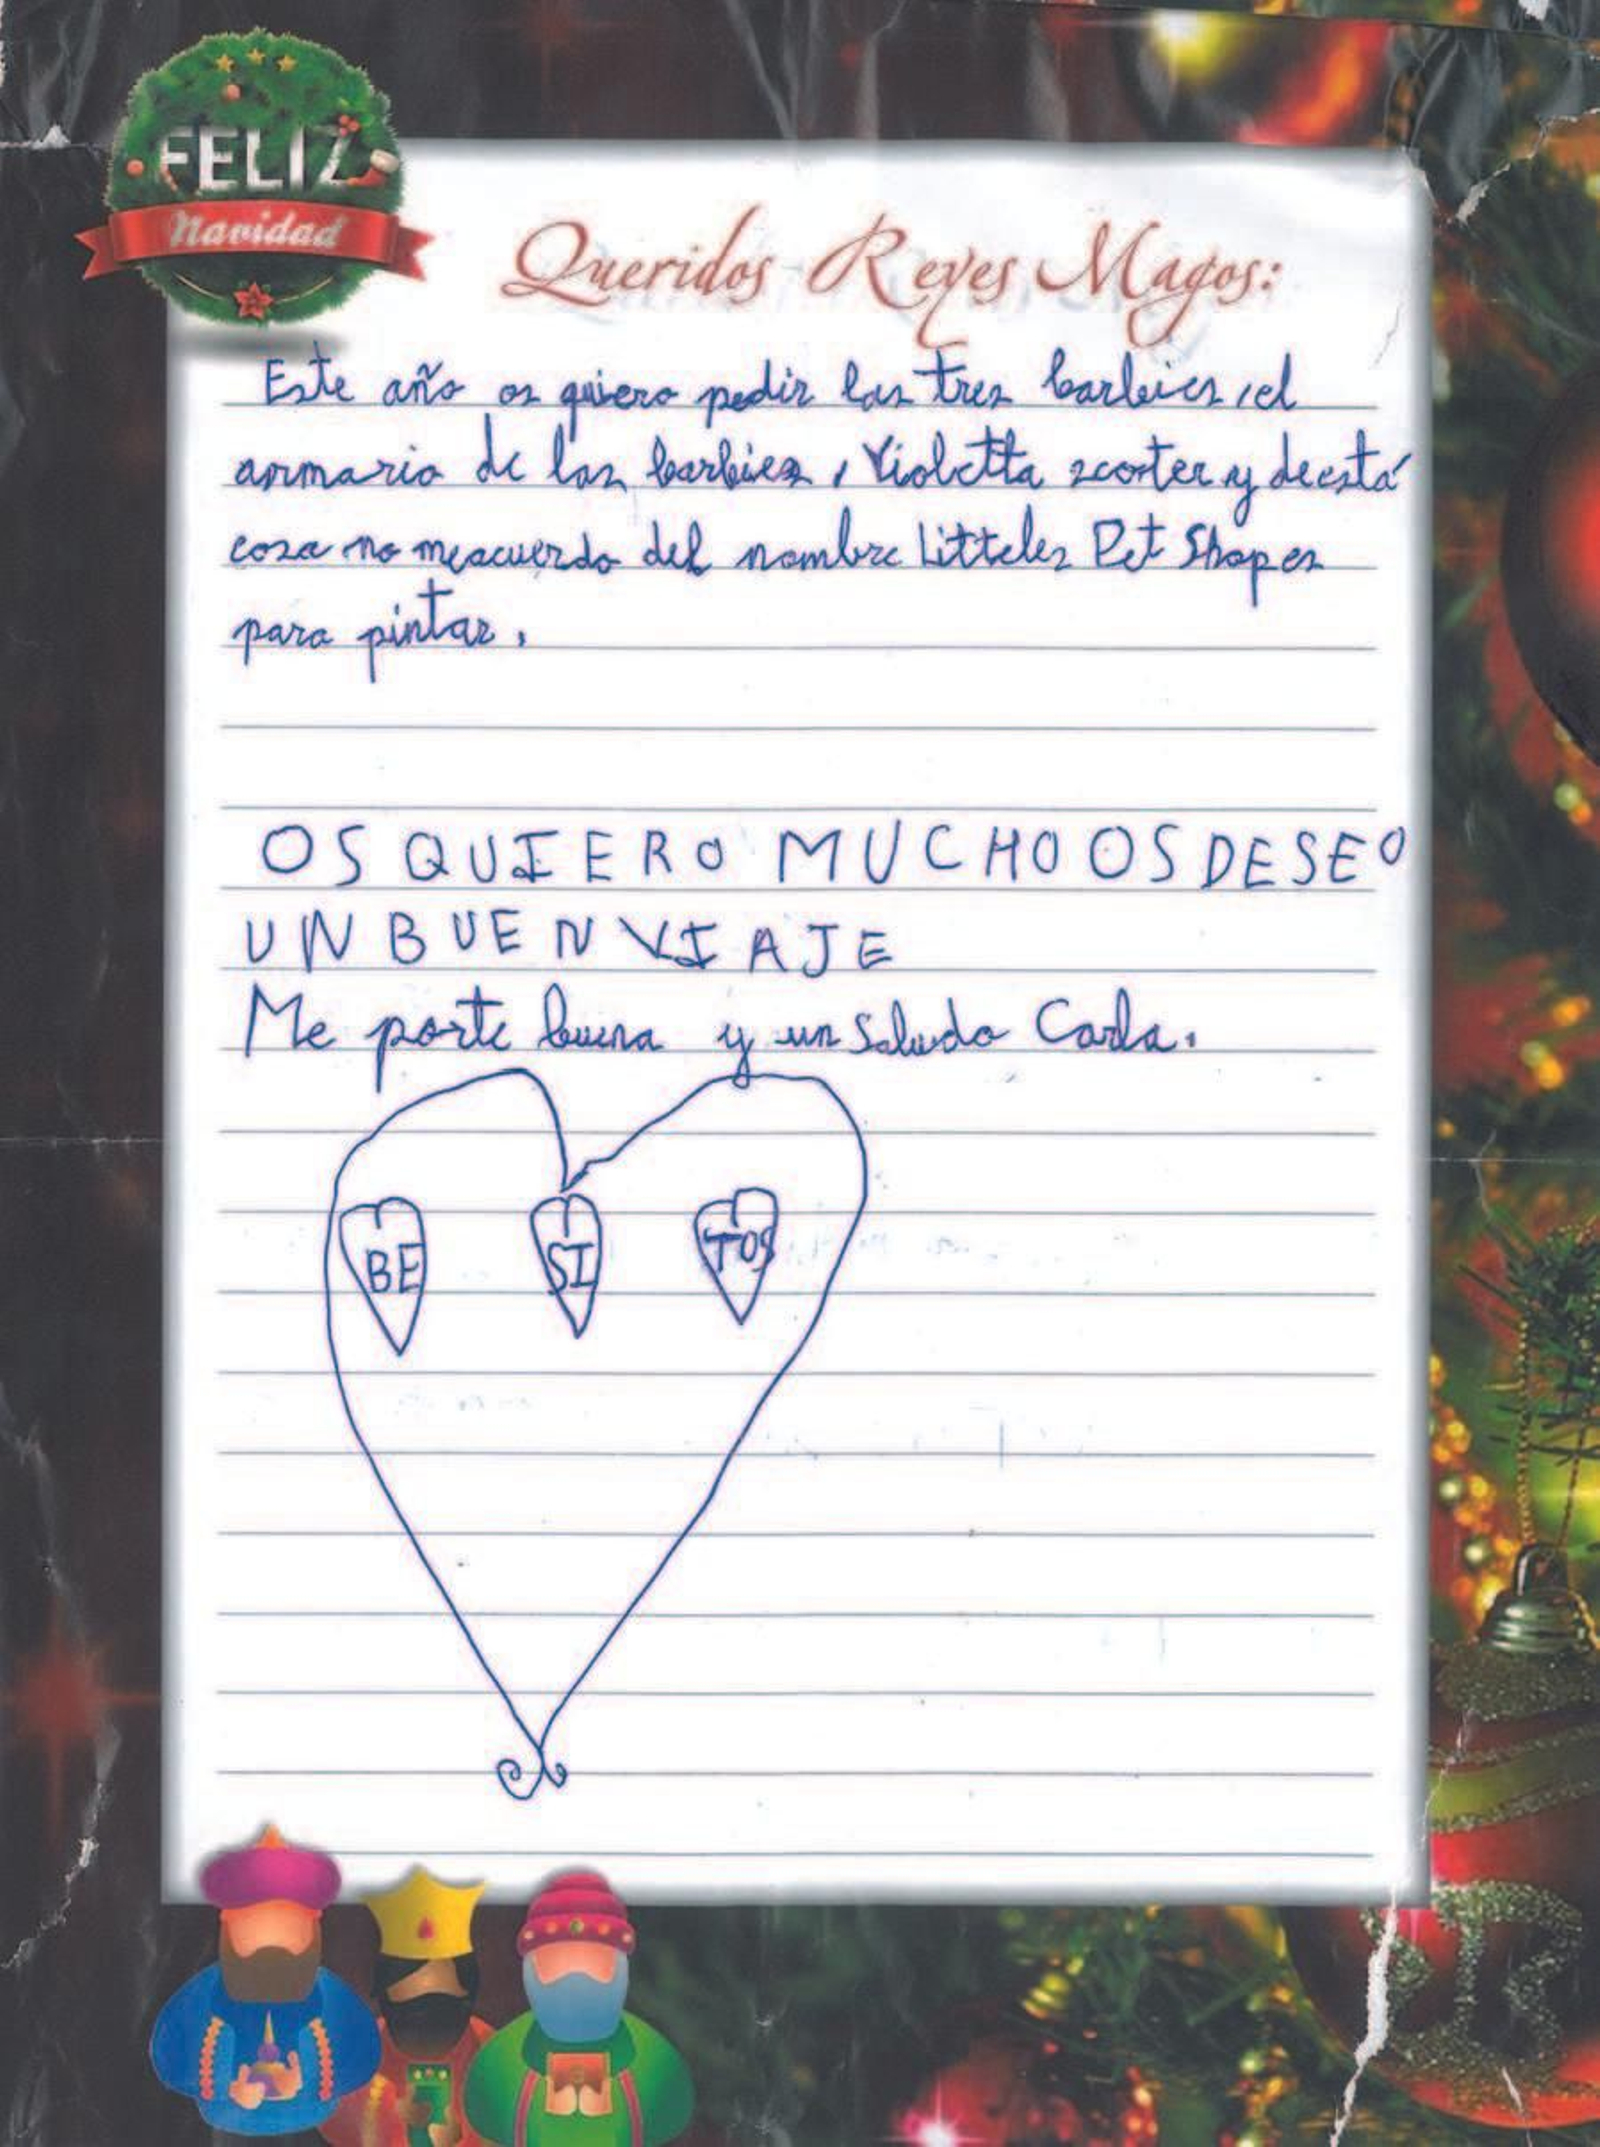 FELIZ
Navidad
Queridos Reyes Magos:
Este año os quiero pedir las tres barbies, el
armario de las barbies, Violetta scorter y de está
cosa no meacuerdo del nombre Litteles Pet Shop es
para pintar.
OS QUIERO MUCHO OS DESEO
UN BUEN VIAJE
Me porte buena y un saludo Carla.
BE SI TOS